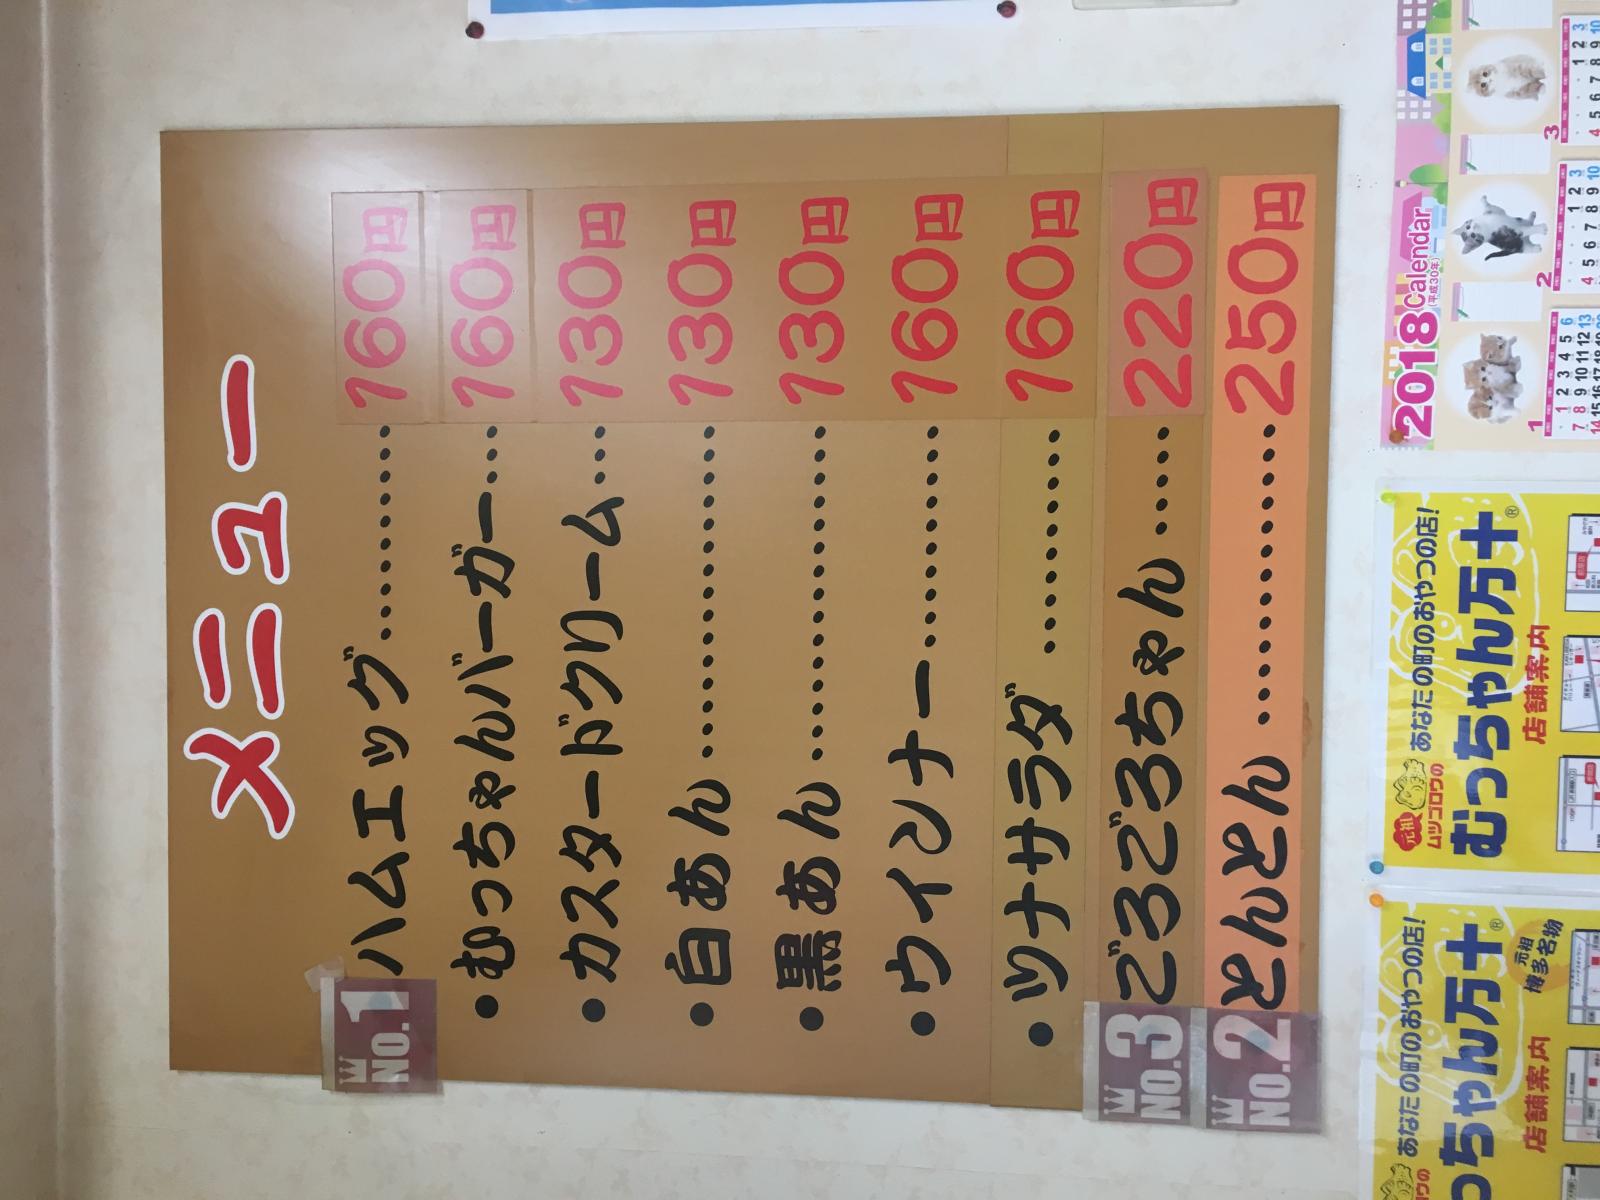 メニュー
No.1 ハムエッグ………160円
・むっちゃんバーガー…160円
・カスタードクリーム…130円
・白あん…………130円
・黒あん…………130円
・ウインナー………160円
・ツナサラダ………160円
No.3 ごろごろちゃん……220円
No.2 とんとん…………250円
2018Calendar
(平成30年)
1
2
3
あなたの町のおやつの店!
元祖
ムツゴロウの
むっちゃん万十®
店舗案内
あなたの町のおやつの店!
っちゃん万十®
元祖
博多名物
店舗案内